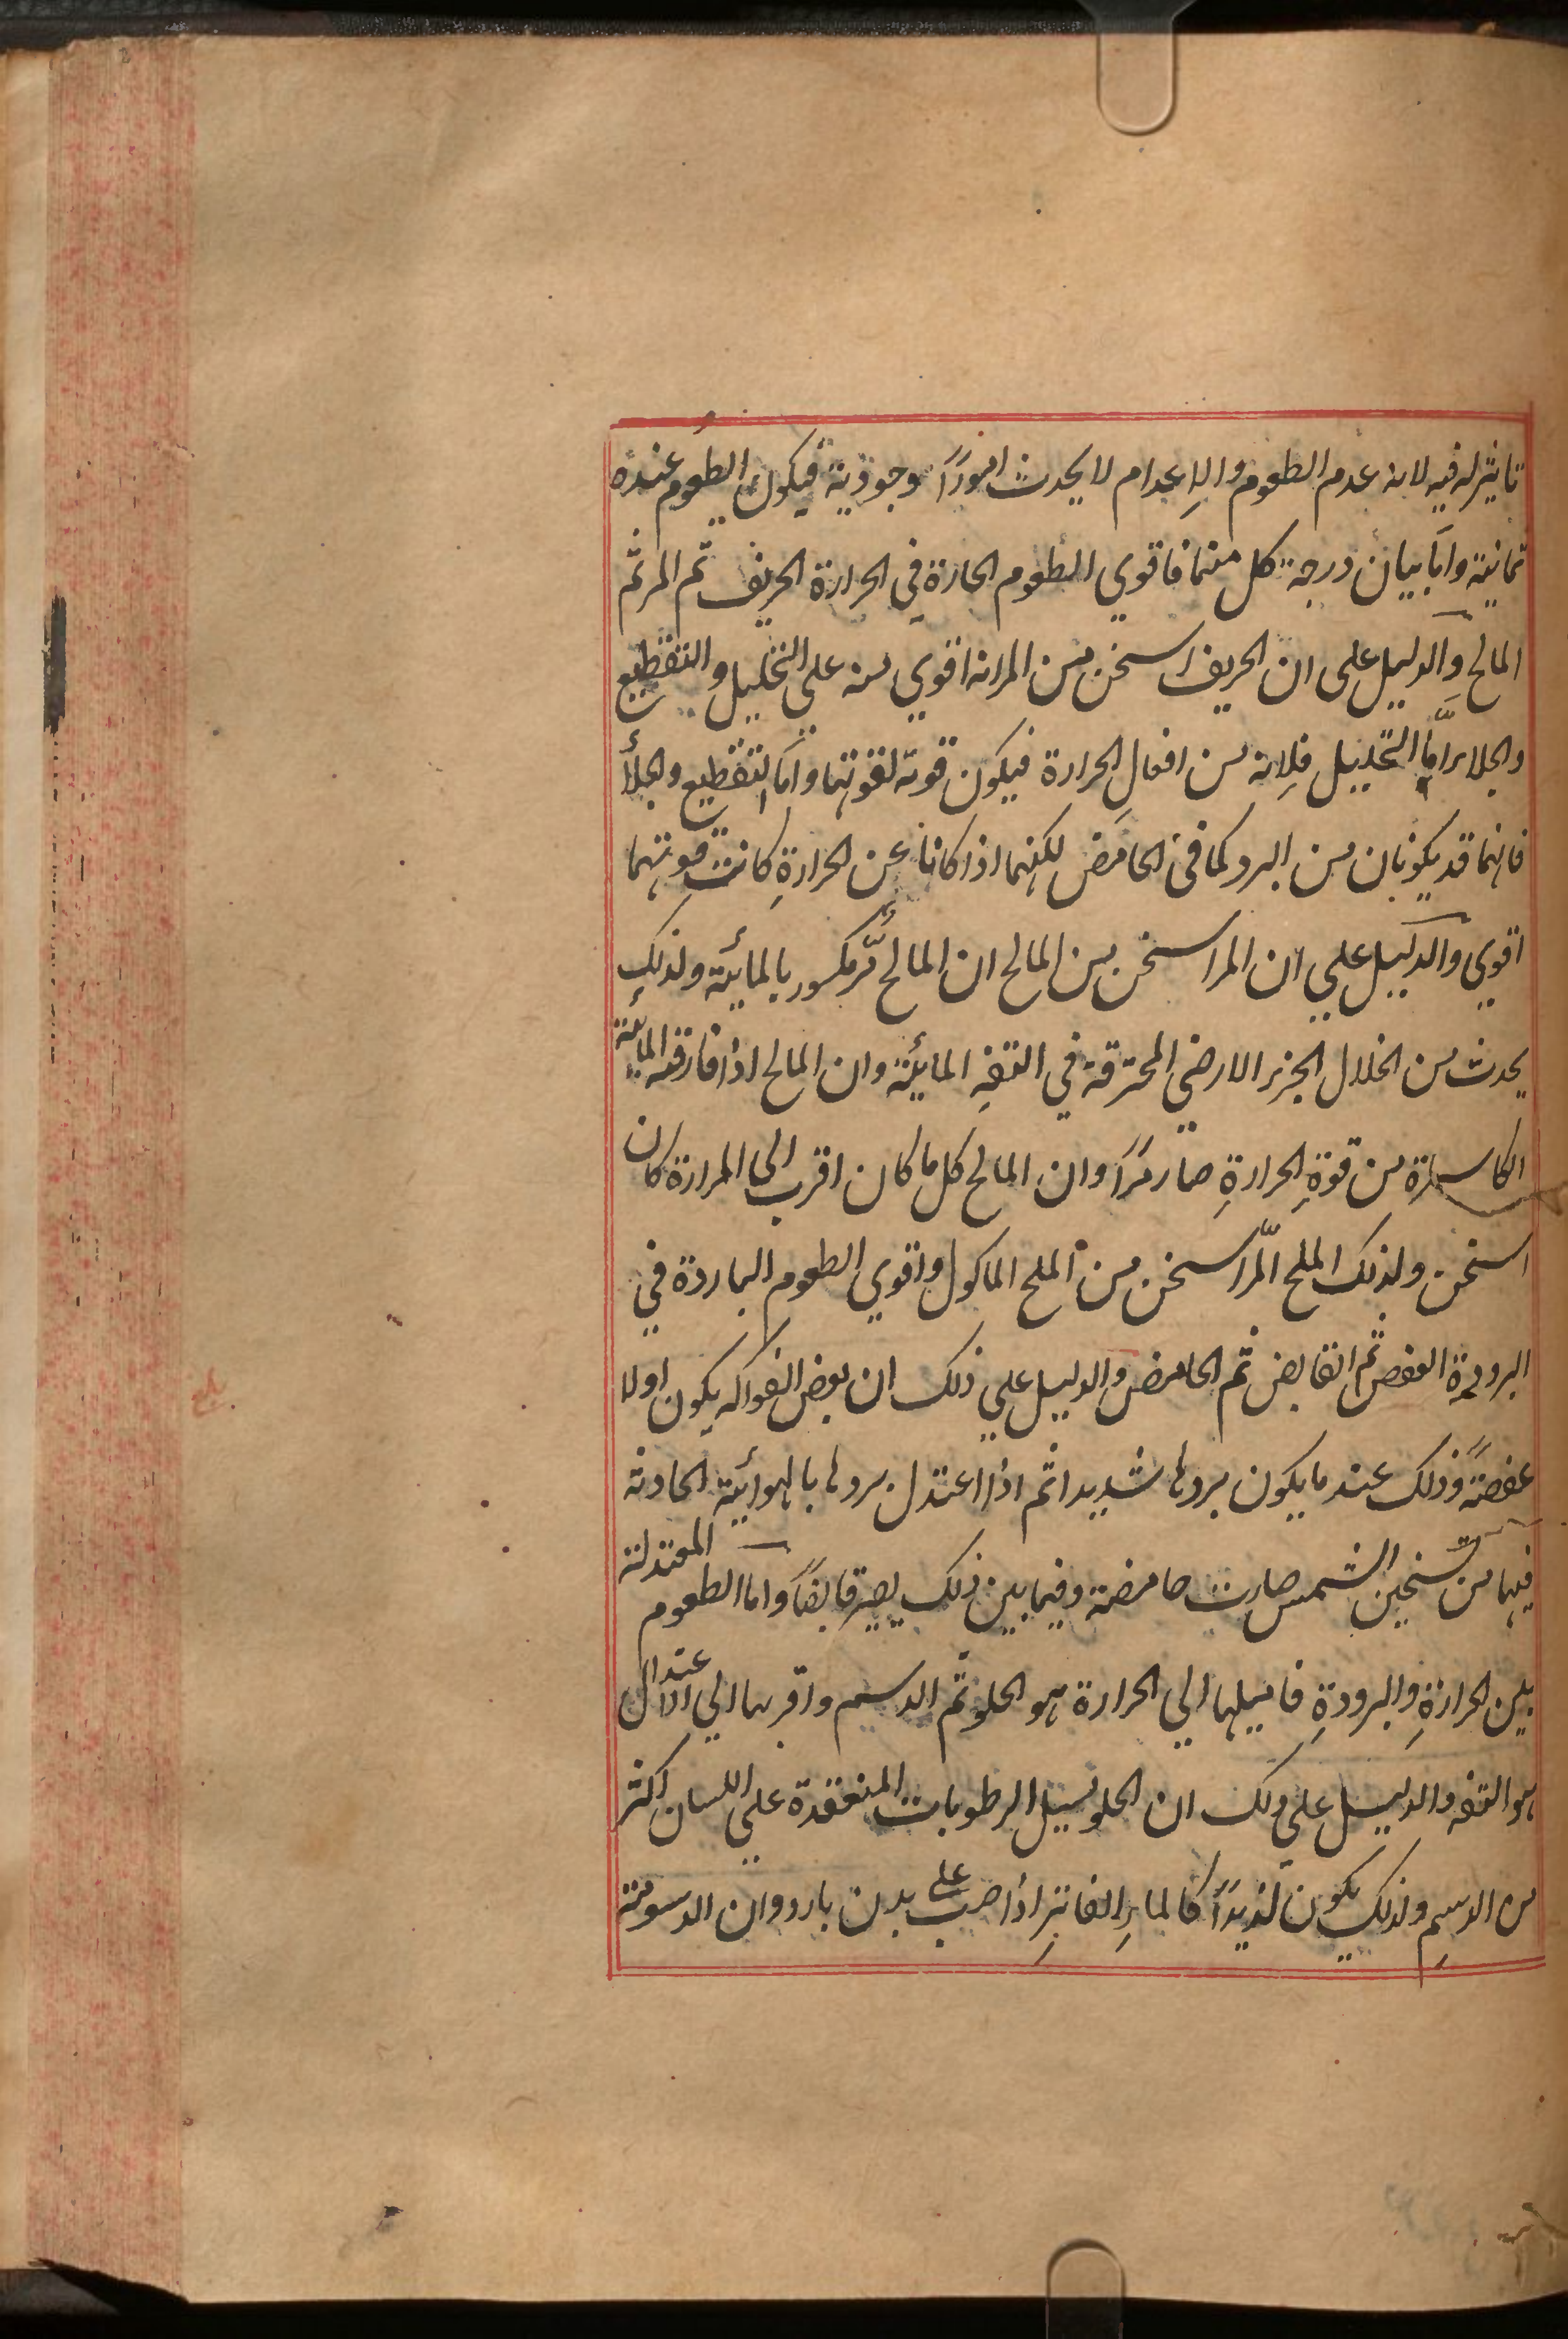 تاثير له فيه لانه عدم الطعوم والاعدام لا يحدث امورًا وجودية فيكون الطعوم عنده
ثمانية واما بيان درجة كل منها فاقوي الطعوم الحارة في الحرارة الحريف ثم المر ثم
المالح والدليل على ان الحريف اسخن من المر انه اقوي منه علي التحليل والتقطيع
والجلاء اما التحليل فلانه من افعال الحرارة فيكون قوته لقوتها واما التقطيع والجلأ
فانهما قد يكونان من البرد كما في الحامض لكنهما اذا كانا عن الحرارة كانت قوتهما
اقوي والدليل علي ان المر اسخن من المالح ان المالح مُرّ مكسور بالمائية ولذلك
يحدث من انحلال الجزء الارضي المحترقة في التفه المائية وان المالح اذا فارقته المائية
الكاسرة من قوة الحرارة صار مرًا وان المالح كل ما كان اقرب الى المرارة كان
اسخن ولذلك الملح المّر اسخن من الملح الماكول واقوي الطعوم الباردة في
البرودة العفص ثم القابض ثم الحامض والدليل علي ذلك ان بعض الفواكه يكون اولا
عفصةً وذلك عند ما يكون بردها شديدا ثم اذا اعتدل بردها بالهوائية الحادثة
فيها من تسخين الشمس صارت حامضة وفيما بين ذلك يصير قابضًا واما الطعوم المعتدلة
بين الحرارة والبرودة فاميلها الي الحرارة هو الحلو ثم الدسم واقربها الي اعتدال
هو التفه والدليل علي ذلك ان الحلو يسيل الرطوبات المنعقدة علي اللسان اكثر
من الدسم ولذلك يكون لذيذًا كالماء الفاتر اذا صب على بدن بارد وان الدسومة